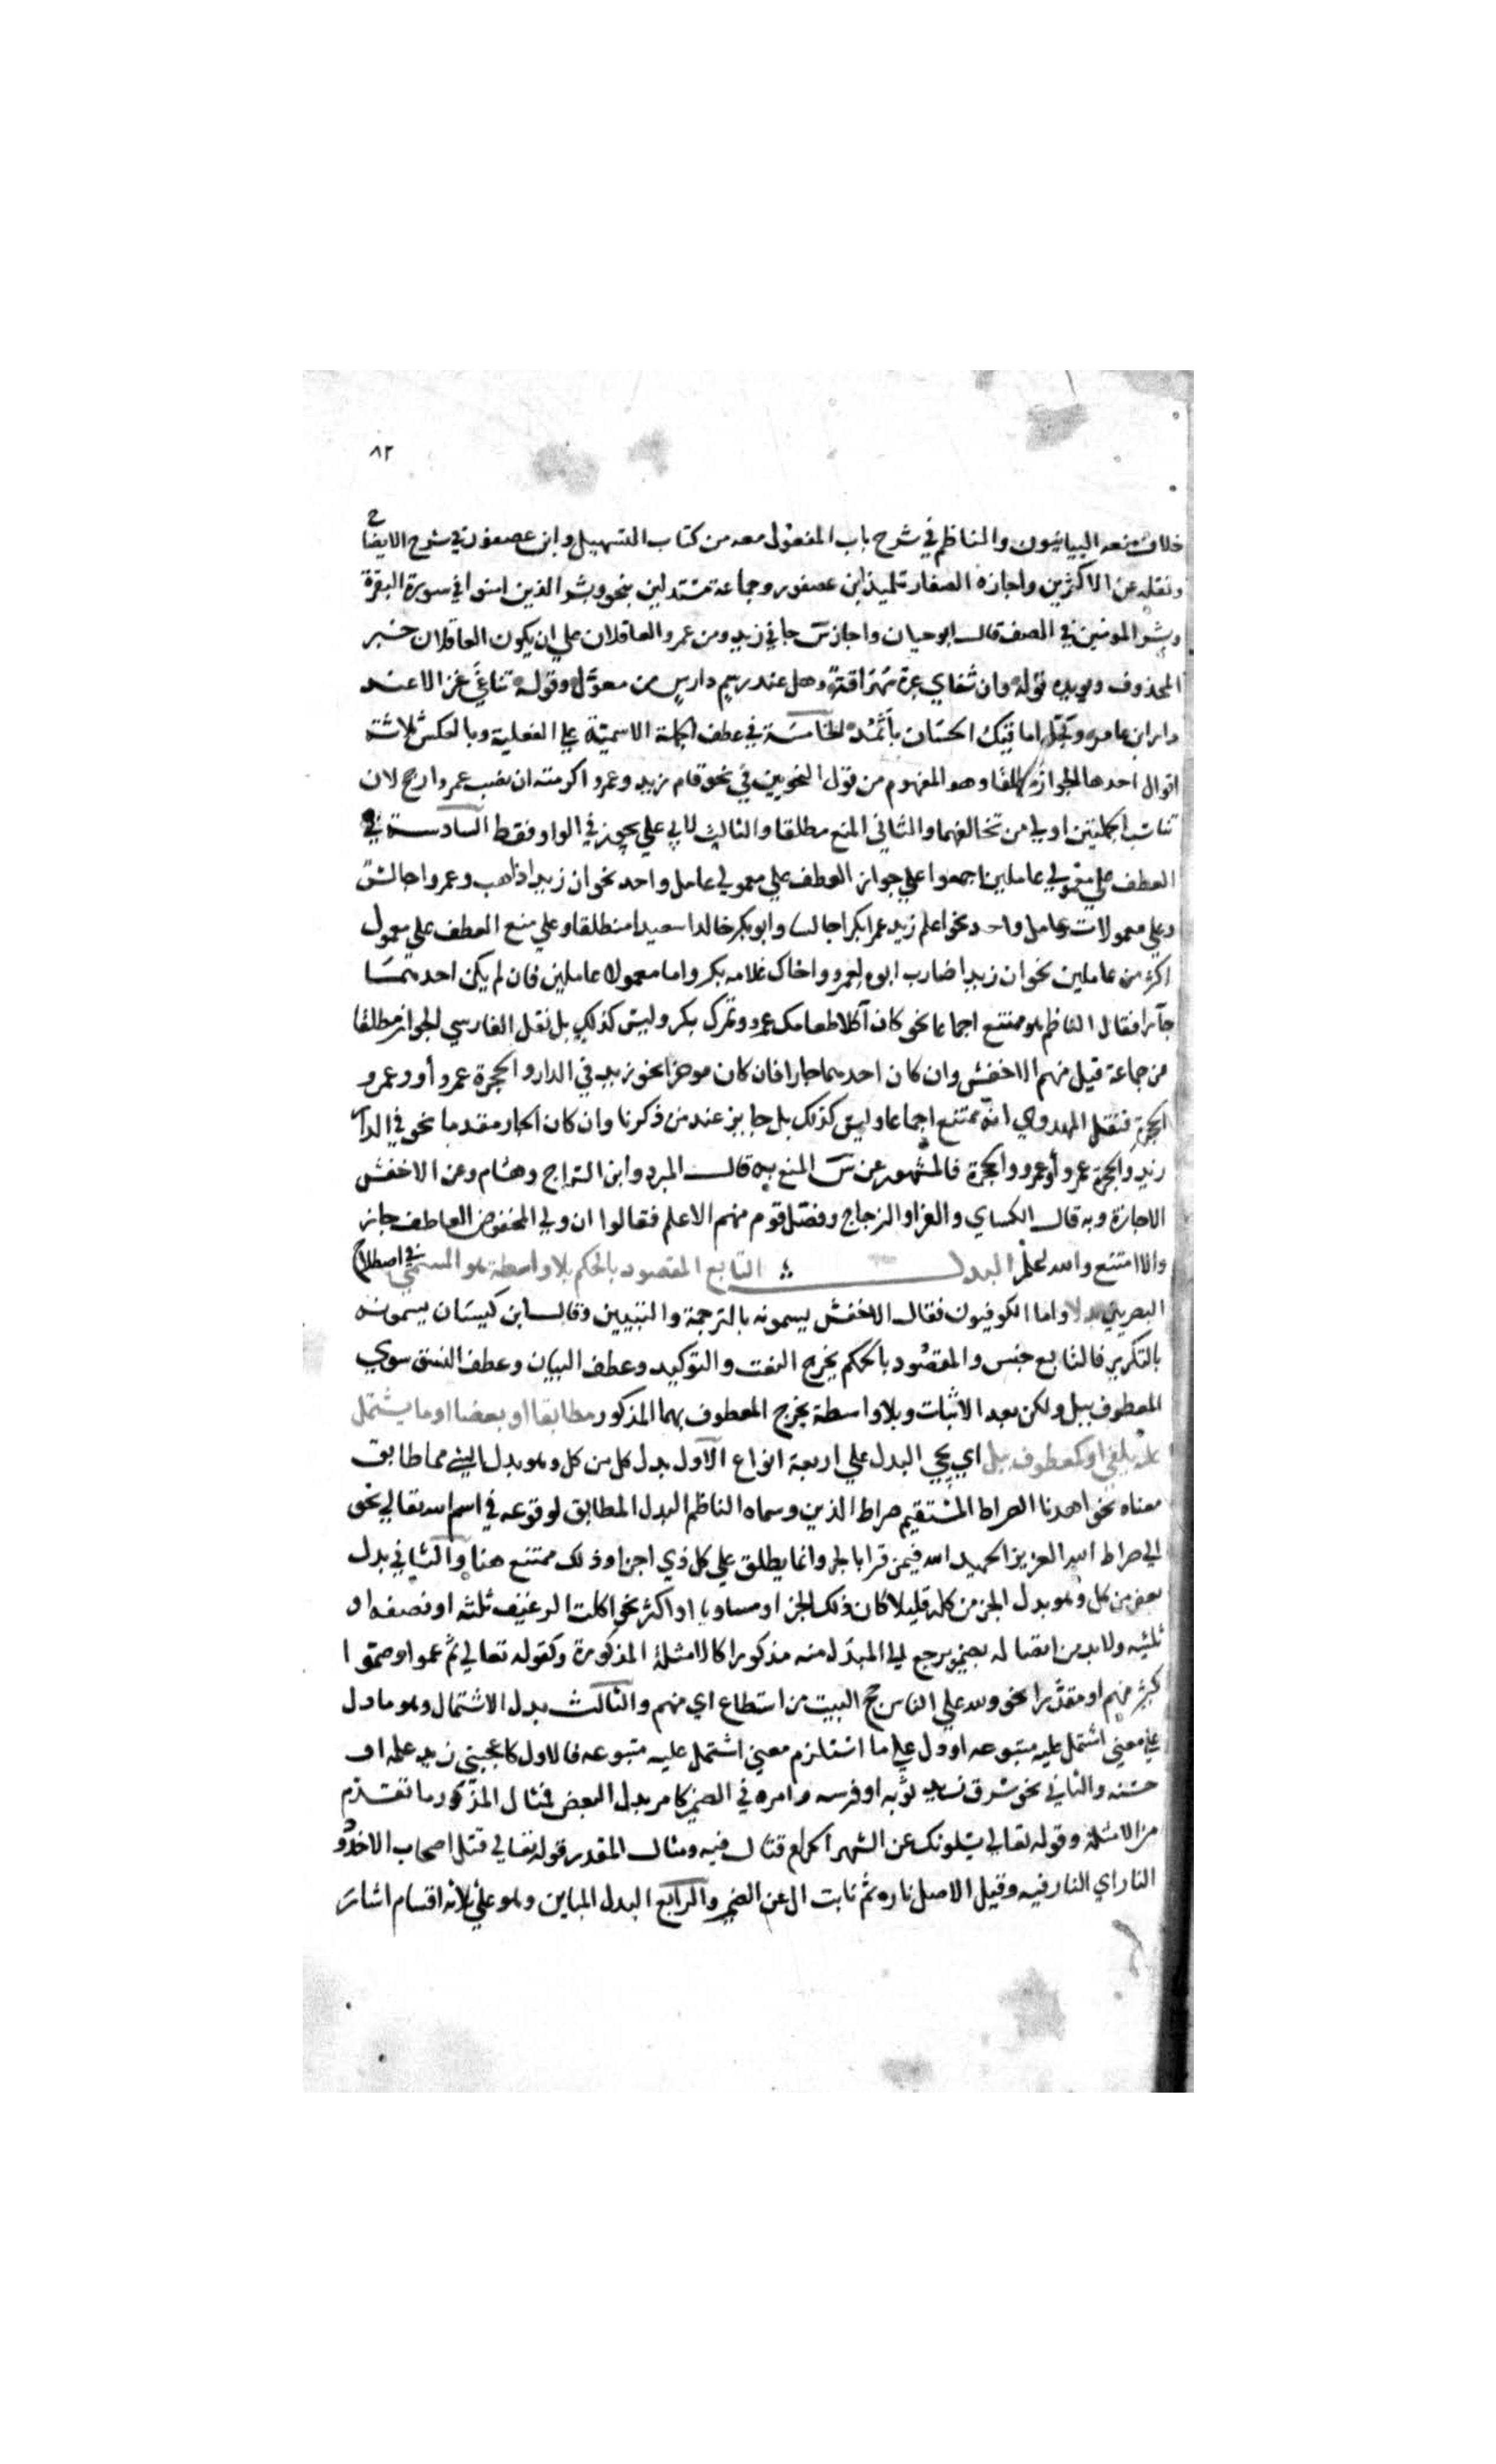 ٨٢
خلاف منعه البيانيون والناظم في شرح باب المفعول معه من كتاب التسهيل وابن عصفور في شرح الايضاح
ونقله عن الاكثرين واجازه الصفار تلميذ ابن عصفور وجماعة مستدلين بنحو وبشر الذين امنوا في سورة البقرة
وبشر المومنين في الصف قال ابو حيان واجاز س جاني زيد ومن عمرو العاقلان علي ان يكون العاقلان خبر
المحذوف ويويده قوله وان شفاي عبرة مهراقة وهل عند رسم دارس من معول وقوله تناغي غزالا عند
دار ابن عامر وكحل اماقيك الحسان باثمد الخامسة في عطف الجملة الاسمية علي الفعلية وبالعكس ثلاثة
اقوال احدها الجواز مطلقا وهو المفهوم من قول النحويين في نحو قام زيد وعمرو اكرمته ان نصب عمرو ارجح لان
تناسب الجملتين اولي من تخالفهما والثاني المنع مطلقا والثالث لابي علي يجوز في الواو فقط السادسة في
العطف علي معمولي عاملين اجمعوا علي جواز العطف علي معمولي عامل واحد نحو ان زيدا ذاهب وعمرا جالس
وعلي معمولات عامل واحد نحو اعلم زيد عمرا بكرا جالسا وابو بكر خالدا سعيدا منطلقا وعلي منع العطف علي معمول
اكثر من عاملين نحو ان زيدا ضارب ابوه لعمرو واخاك غلامه بكر واما معمولا عاملين فان لم يكن احدهما
جارا فقال الناظم هو ممتنع اجماعا نحو كان اكلا طعامك عمرو وتمرك بكر وليس كذلك بل نقل الفارسي الجواز مطلقا
من جماعة قيل منهم الاخفش وان كان احدهما جارا فان كان موخرا نحو زيد في الدار والحجرة عمرو أو وعمرو
الحجرة فنقل المهدوي انه ممتنع اجماعا وليس كذلك بل جايز عند من ذكرنا وان كان الجار مقدما نحو في الدار
زيد والحجرة عمرو أو وعمرو والحجرة فالمشهور عن س المنع به قال المبرد وابن السراج وهشام وعن الاخفش
الاجازة وبه قال الكساي والفرا والزجاج وفصل قوم منهم الاعلم فقالوا ان ولي المخفوض العاطف جاز
والا امتنع والله اعلم البدل التابع المقصود بالحكم بلا واسطة هو المسمي في اصطلاح
البصريين بدلا واما الكوفيون فقال الاخفش يسمونه بالترجمة والتبيين وقال ابن كيسان يسمونه
بالتكرير فالتابع جنس والمقصود بالحكم يخرج النعت والتوكيد وعطف البيان وعطف النسق سوي
المعطوف ببل ولكن بعد الاثبات وبلا واسطة يخرج المعطوف بهما المذكور مطابقا او بعضا او ما يشتمل
عليه يلفي او كمعطوف ببل اي يجي البدل علي اربعة انواع الاول بدل كل من كل وهو بدل الشي مما طابق
معناه نحو اهدنا الصراط المستقيم صراط الذين وسماه الناظم البدل المطابق لوقوعه في اسم الله تعالي نحو
الي صراط العزيز الحميد الله فيمن قرا بالجر وانما يطلق علي كل ذي اجزا وذلك ممتنع هنا والثاني بدل
بعض من كل وهو بدل الجز من كله قليلا كان ذلك الجز او مساويا او اكثر نحو اكلت الرغيف ثلثه او نصفه او
ثلثيه ولا بد من اتصاله بضمير يرجع الي المبدل منه مذكورا كالامثلة المذكورة وكقوله تعالي ثم عموا وصموا
كثير منهم او مقدرا نحو ولله علي الناس حج البيت من استطاع اي منهم والثالث بدل الاشتمال وهو ما دل
علي معني اشتمل عليه متبوعه او دل علي ما استلزم معني اشتمل عليه متبوعه فالاول كاعجبني زيد علمه او
حسنه والثاني نحو سرق زيد ثوبه او فرسه وامره في الضمير كامر بدل البعض فمثال المذكور ما تقدم
من الامثلة وقوله تعالي يسلونك عن الشهر الحرام قتال فيه ومثال المقدر قوله تعالي قتل اصحاب الاخدود
النار اي النار فيه وقيل الاصل ناره ثم نابت ال عن الضمير والرابع البدل المباين وهو علي ثلاثة اقسام اشار